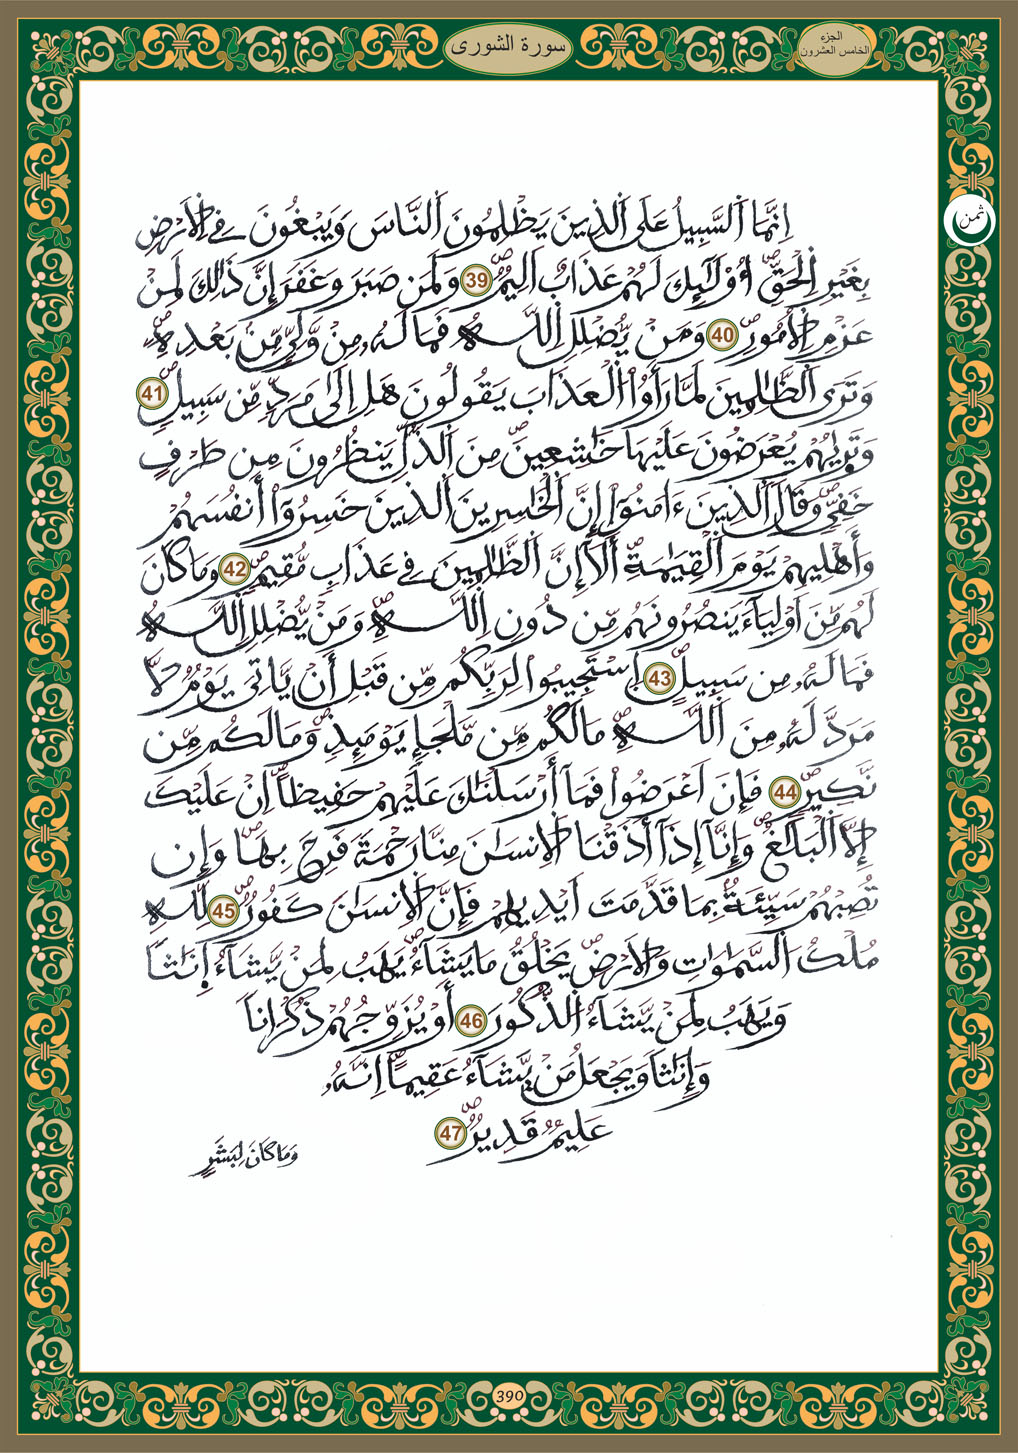 سورة الشورى
الجزء
الخامس العشرون
ثمن
اِنَّمَا اَ۬لسَّبِيلُ عَلَى اَ۬لذِينَ يَظْلِمُونَ اَ۬لنَّاسَ وَيَبْغُونَ فِے اِ۬لَارْضِ
بِغَيْرِ اِ۬لْحَقِّ أُوْلَٰٓئِكَ لَهُمْ عَذَابٌ اَلِيمٌ 39 وَلَمَن صَبَرَ وَغَفَرَ إِنَّ ذَٰلِكَ لَمِنْ
عَزْمِ اِ۬لُامُورِ 40 وَمَنْ يُّضْلِلِ اِ۬للَّهُ فَمَا لَهُۥ مِنْ وَّلِيٍّ مِّنۢ بَعْدِهِۦ
وَتَرَى اَ۬لظَّٰلِمِينَ لَمَّا رَأَوُاْ اُ۬لْعَذَابَ يَقُولُونَ هَلِ اِلَىٰ مَرَدٍّ مِّن سَبِيلٍ 41
وَتَر۪يٰهُمْ يُعْرَضُونَ عَلَيْهَا خَٰشِعِينَ مِنَ اَ۬لذُّلِّ يَنظُرُونَ مِن طَرْفٍ
خَفِيٍّ وَقَالَ اَ۬لذِينَ ءَامَنُوٓاْ إِنَّ اَ۬لْخَٰسِرِينَ اَ۬لذِينَ خَسِرُوٓاْ أَنفُسَهُمْ
وَأَهْلِيهِمْ يَوْمَ اَ۬لْقِيَٰمَةِ أَلَآ إِنَّ اَ۬لظَّٰلِمِينَ فِے عَذَابٍ مُّقِيمٍ 42 وَمَا كَانَ
لَهُم مِّنَ اَوْلِيَآءَ يَنصُرُونَهُم مِّن دُونِ اِ۬للَّهِ وَمَنْ يُّضْلِلِ اِ۬للَّهُ
فَمَا لَهُۥ مِن سَبِيلٍ 43 اِ۪سْتَجِيبُواْ لِرَبِّكُم مِّن قَبْلِ أَنْ يَّاتِيَ يَوْمٌ لَّا
مَرَدَّ لَهُۥ مِنَ اَ۬للَّهِ مَا لَكُم مِّن مَّلْجَإٍ يَوْمَئِذٍ وَمَا لَكُم مِّن
نَّكِيرٍ 44 فَإِنَ اَعْرَضُواْ فَمَآ أَرْسَلْنَٰكَ عَلَيْهِمْ حَفِيظاً اِنْ عَلَيْكَ
إِلَّا اَ۬لْبَلَٰغُ وَإِنَّآ إِذَآ أَذَقْنَا اَ۬لِانسَٰنَ مِنَّا رَحْمَةً فَرِحَ بِهَا وَإِن
تُصِبْهُمْ سَيِّئَةٌۢ بِمَا قَدَّمَتَ اَيْدِيهِمْ فَإِنَّ اَ۬لِانسَٰنَ كَفُورٌ 45 لِّلهِ
مُلْكُ اُ۬لسَّمَٰوَٰتِ وَالَارْضِ يَخْلُقُ مَا يَشَآءُ يَهَبُ لِمَنْ يَّشَآءُ إِنَٰثاً
وَيَهَبُ لِمَنْ يَّشَآءُ اُ۬لذُّكُورَ 46 أَوْ يُزَوِّجُهُمْ ذُكْرَاناً
وَإِنَٰثاً وَيَجْعَلُ مَنْ يَّشَآءُ عَقِيماً اِنَّهُۥ
عَلِيمٌ قَدِيرٌ 47
وَمَا كَانَ لِبَشَرٍ
390